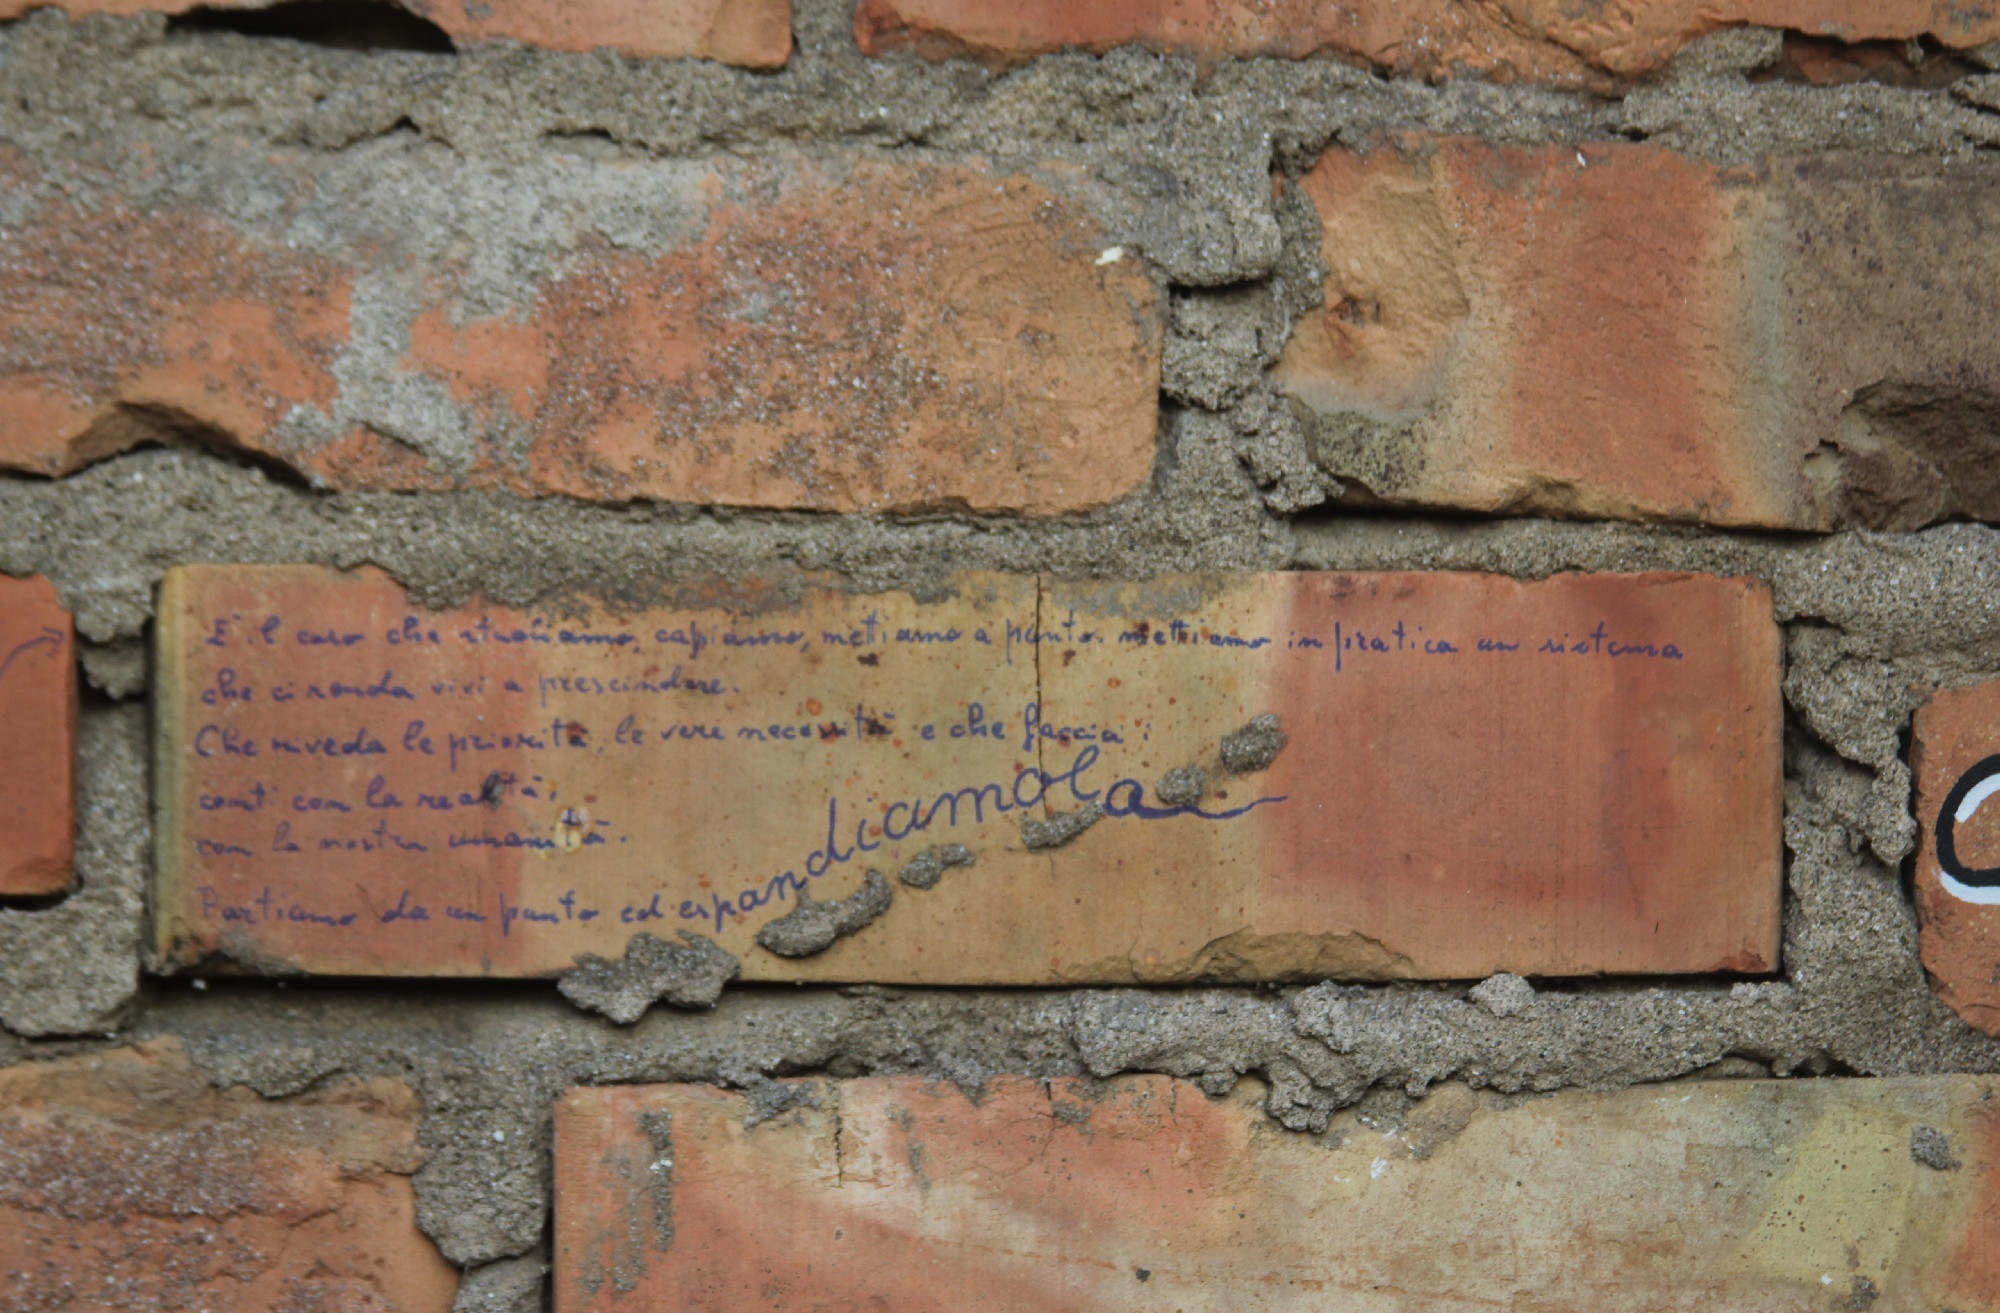 E' il caso che studiamo, capiamo, mettiamo a punto. mettiamo in pratica un sistema
che ci renda vivi a prescindere.
Che riveda le priorità, le vere necessità e che faccia i
conti con la realtà,
con la nostra umanità.
Partiamo da un punto ed espandiamola